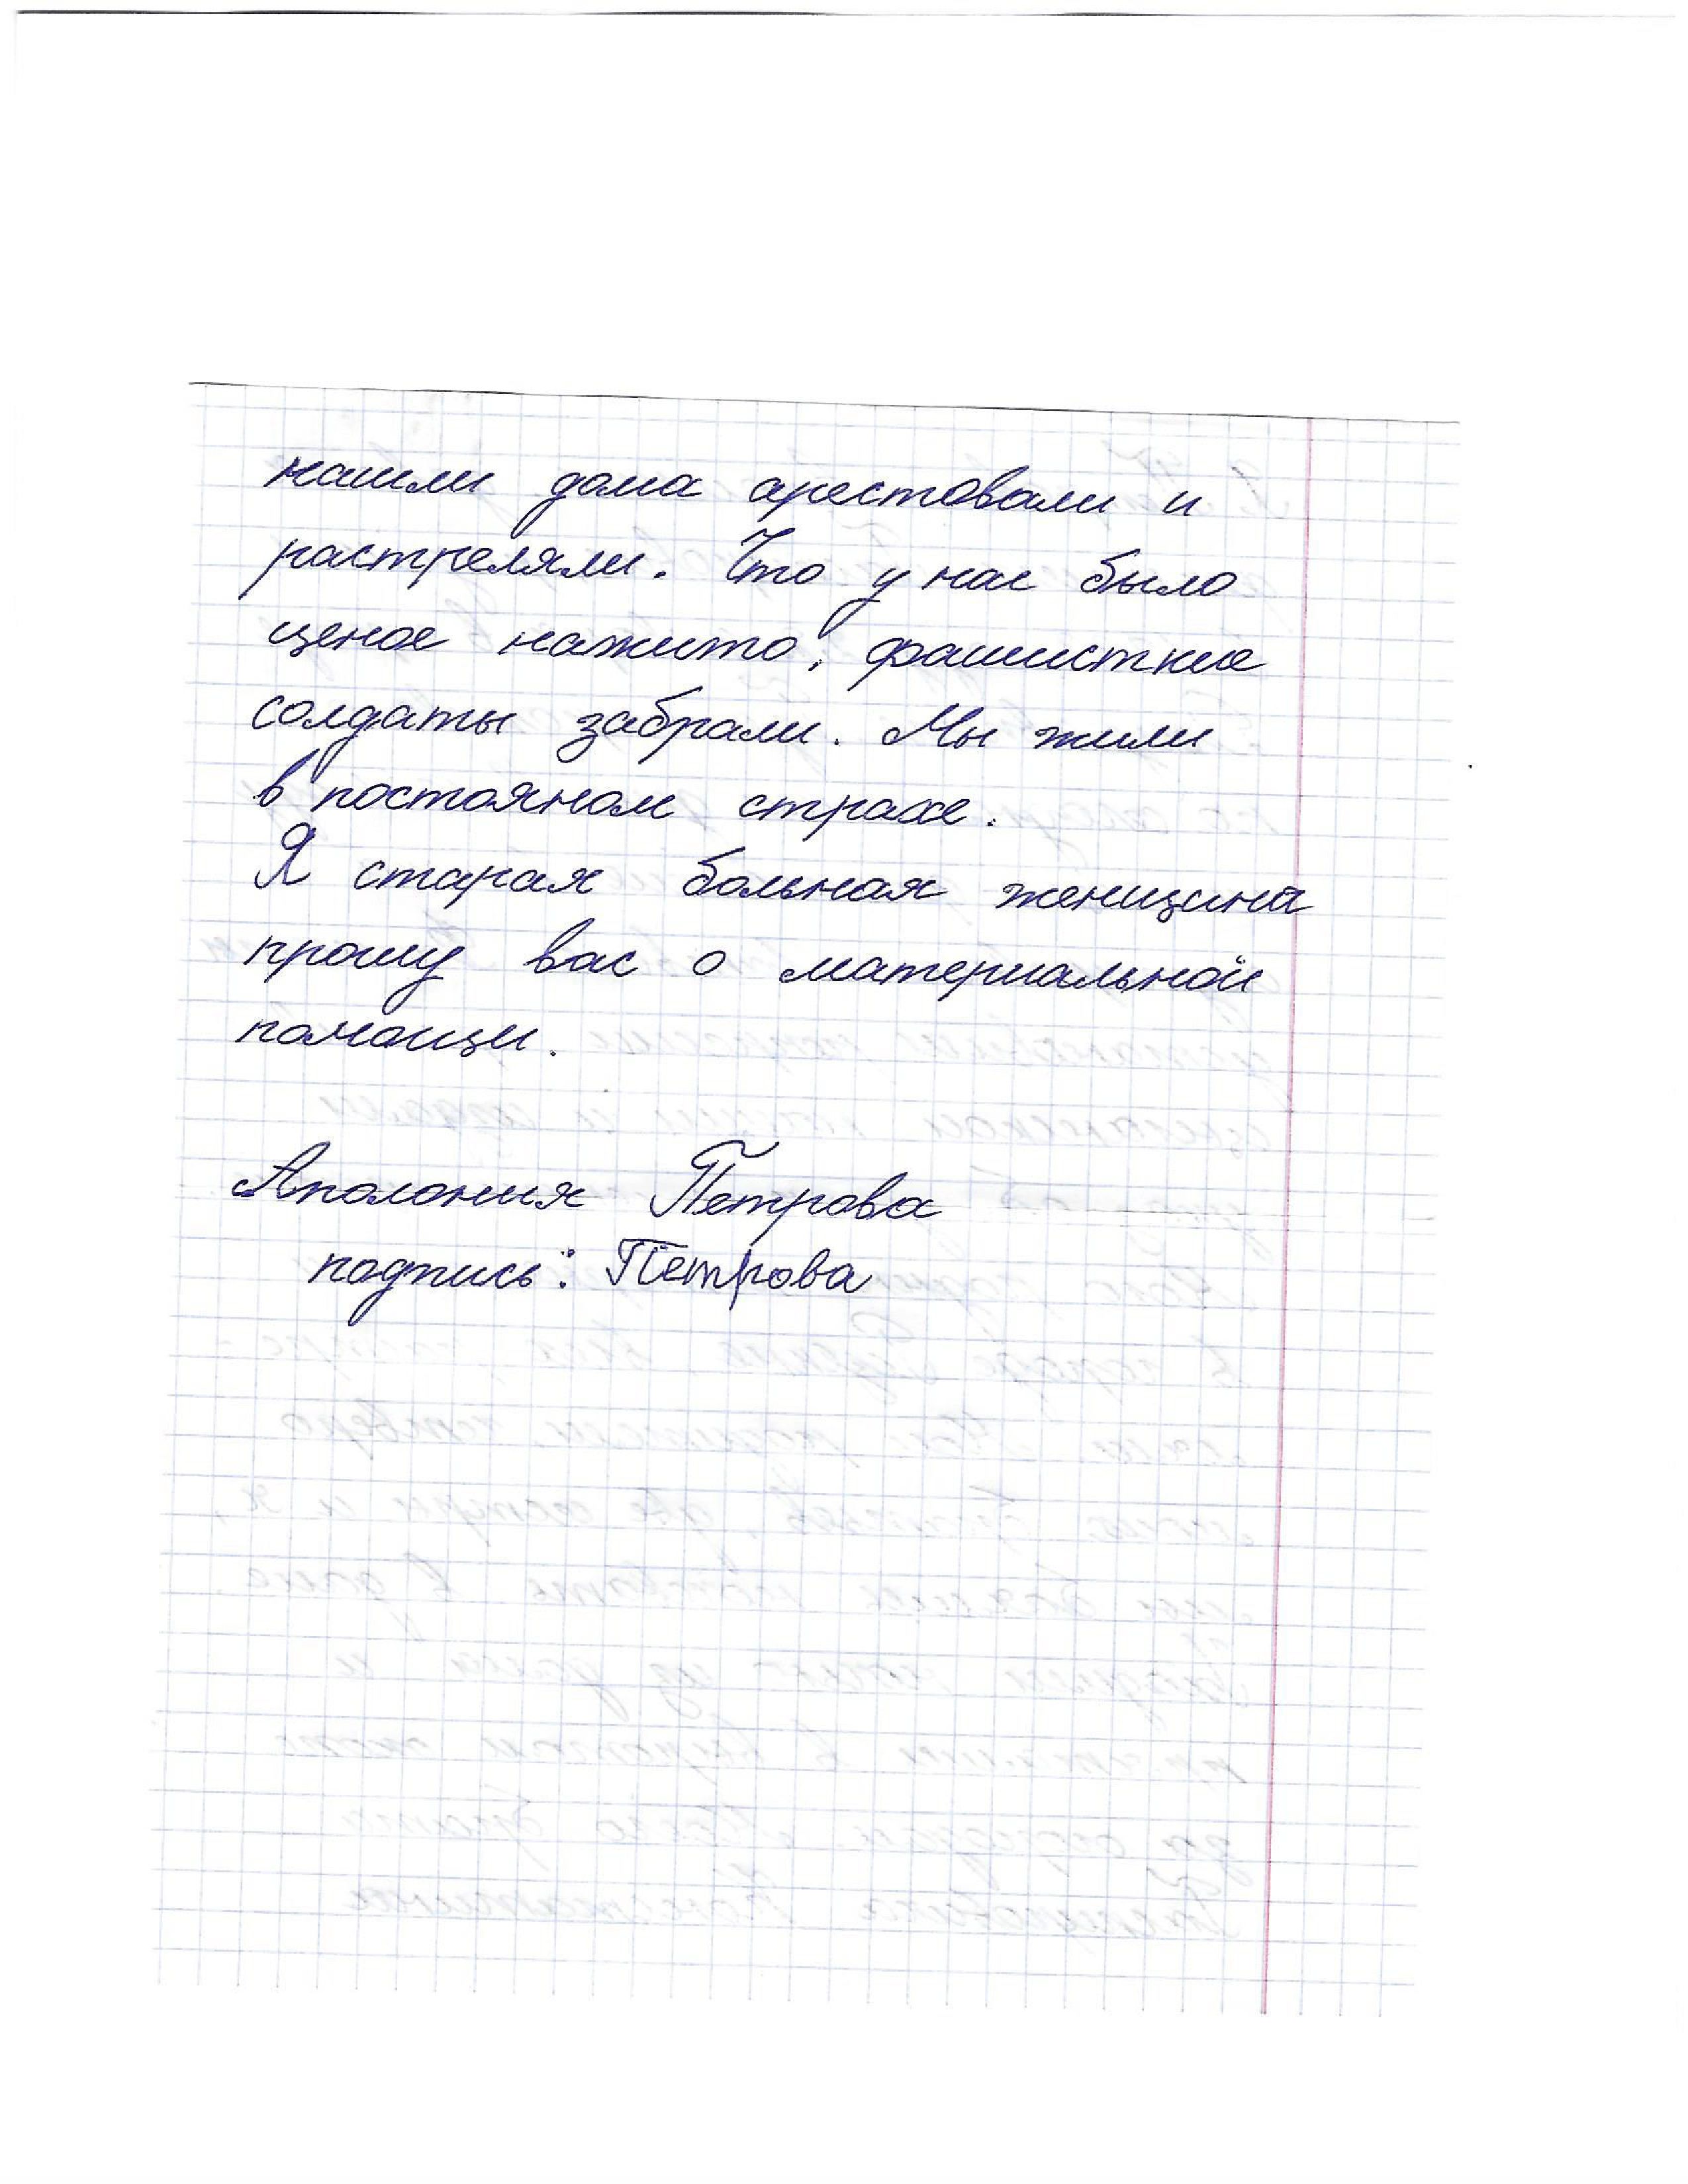 нашли дома арестовали и
растреляли. Что у нас было
ценое нажито, фашисткие
солдаты забрали. Мы жили
в постояном страхе.
Я старая больная женщина
прошу вас о материальной
помощи.
Аполония Петрова
подпись: Петрова